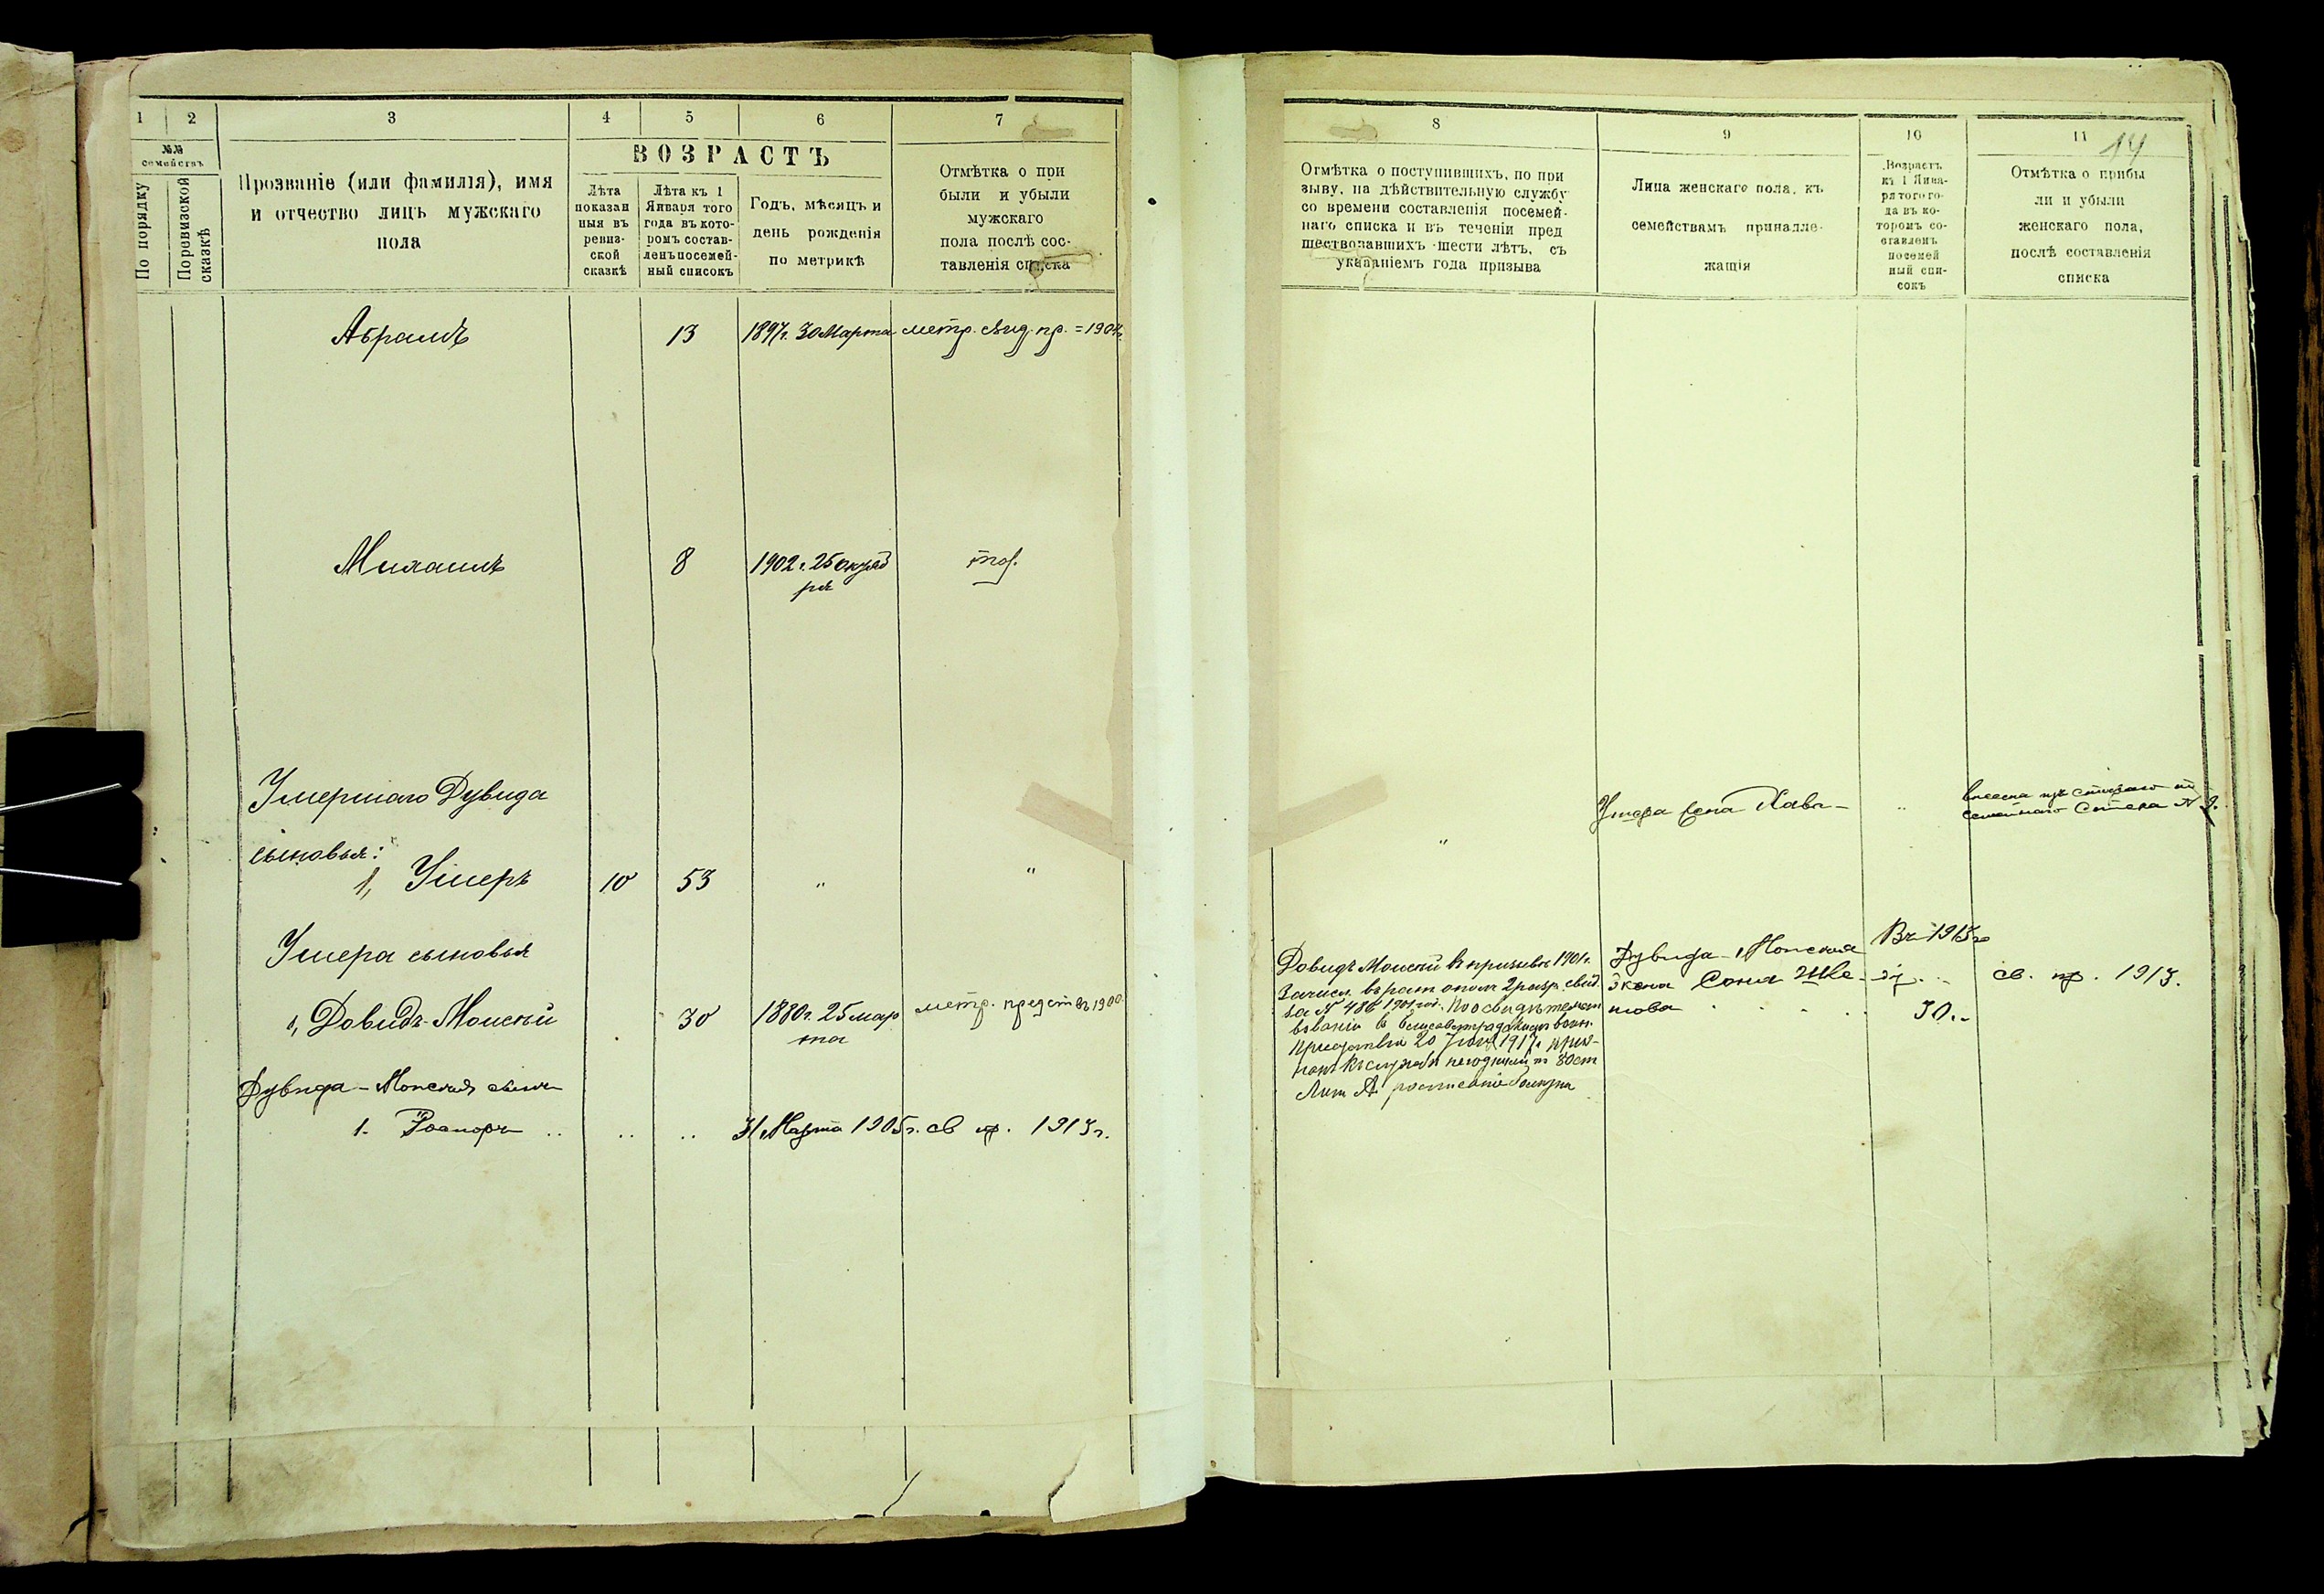 1 2 3 4 5 6 7
№№ семействъ
По порядку
По ревизской сказкѣ
Прозваніе (или фамилія), имя
и отчество лицъ мужскаго
пола
ВОЗРАСТЪ
Лѣта
показан
ныя въ
ревиз-
ской
сказкѣ
Лѣта къ 1
Января того
года въ кото-
ромъ состав-
ленъ посемей-
ный списокъ
Годъ, мѣсяцъ и
день рожденія
по метрикѣ
Отмѣтка о при
были и убыли
мужскаго
пола послѣ сос-
тавленія списка
Абрамъ 13 1897г. 30 Марта метр. свид. пр. = 1904г.
Михаилъ 8 1902 г. 25 октяб
ря
Умершаго Дувида
сыновья:
1, Ушеръ 10 53 " "
Ушера сыновья
1, Довидъ-Моисей 30 1880г. 25 мар
та
метр. предст въ 1900
Дувида-Моисея сынъ
1. .. .. .. 31 Марта 1905г. св пр. 1913г.
8 9 10 11
14
Отмѣтка о поступившихъ, по при
зыву, на дѣйствительную службу
со времени составленія посемей-
наго списка и въ теченіи пред
шествовавшихъ шести лѣтъ, съ
указаніемъ года призыва
Лица женскаго пола, къ
семействамъ принадле-
жащія
Возрастъ
къ 1 Янва-
ря того го-
да въ ко-
торомъ со-
ставленъ
посемей
ный спи-
сокъ
Отмѣтка о прибы
ли и убыли
женскаго пола,
послѣ составленія
списка
" Ушера жена Хава " внесена изъ по
семейнаго №
Довидъ Моисей въ призывѣ 1901г.
Зачисл. въ рат ополч 2 разр. свид.
за № 486 1901 год. По освидѣтельст
вованіи въ Елисаветградскомъ воин.
присутствіи 20 1917г приз-
нанъ къ службѣ негоднымъ по 80 ст
Лит А росписанія болѣзн
Дувида-Моисея
жена Соня
Въ 1913г
30.. св. пр. 1913.